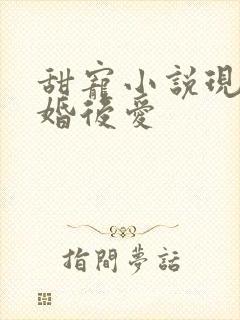 甜寵小説現
婚後愛
指間夢話